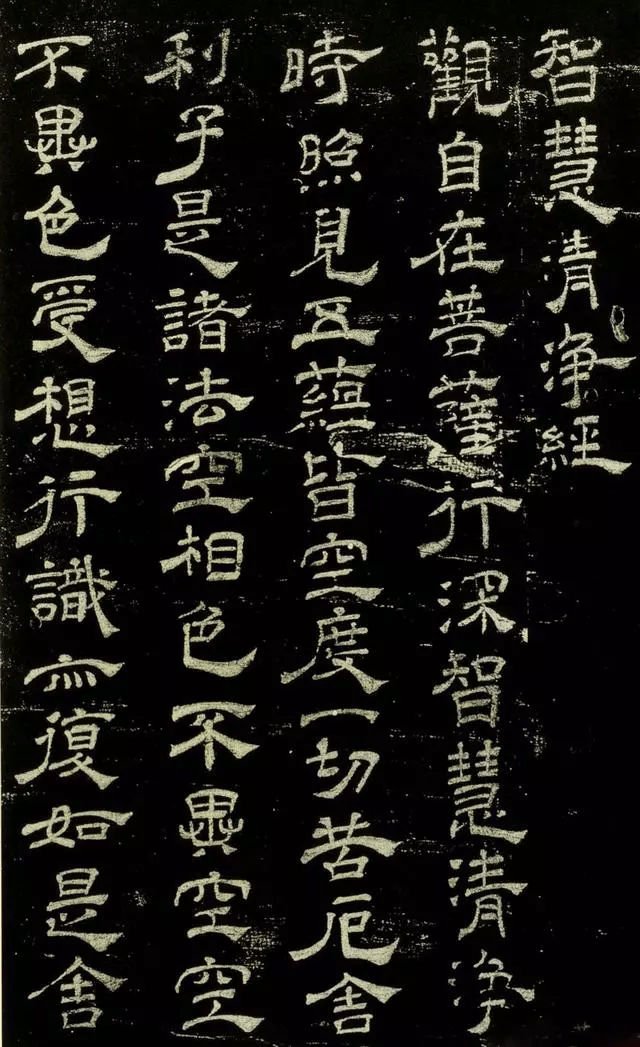 智慧清淨經
觀自在菩薩行深智慧清淨
時照見五蘊皆空度一切苦厄舍
利子是諸法空相色不異空空
不異色受想行識亦復如是舍